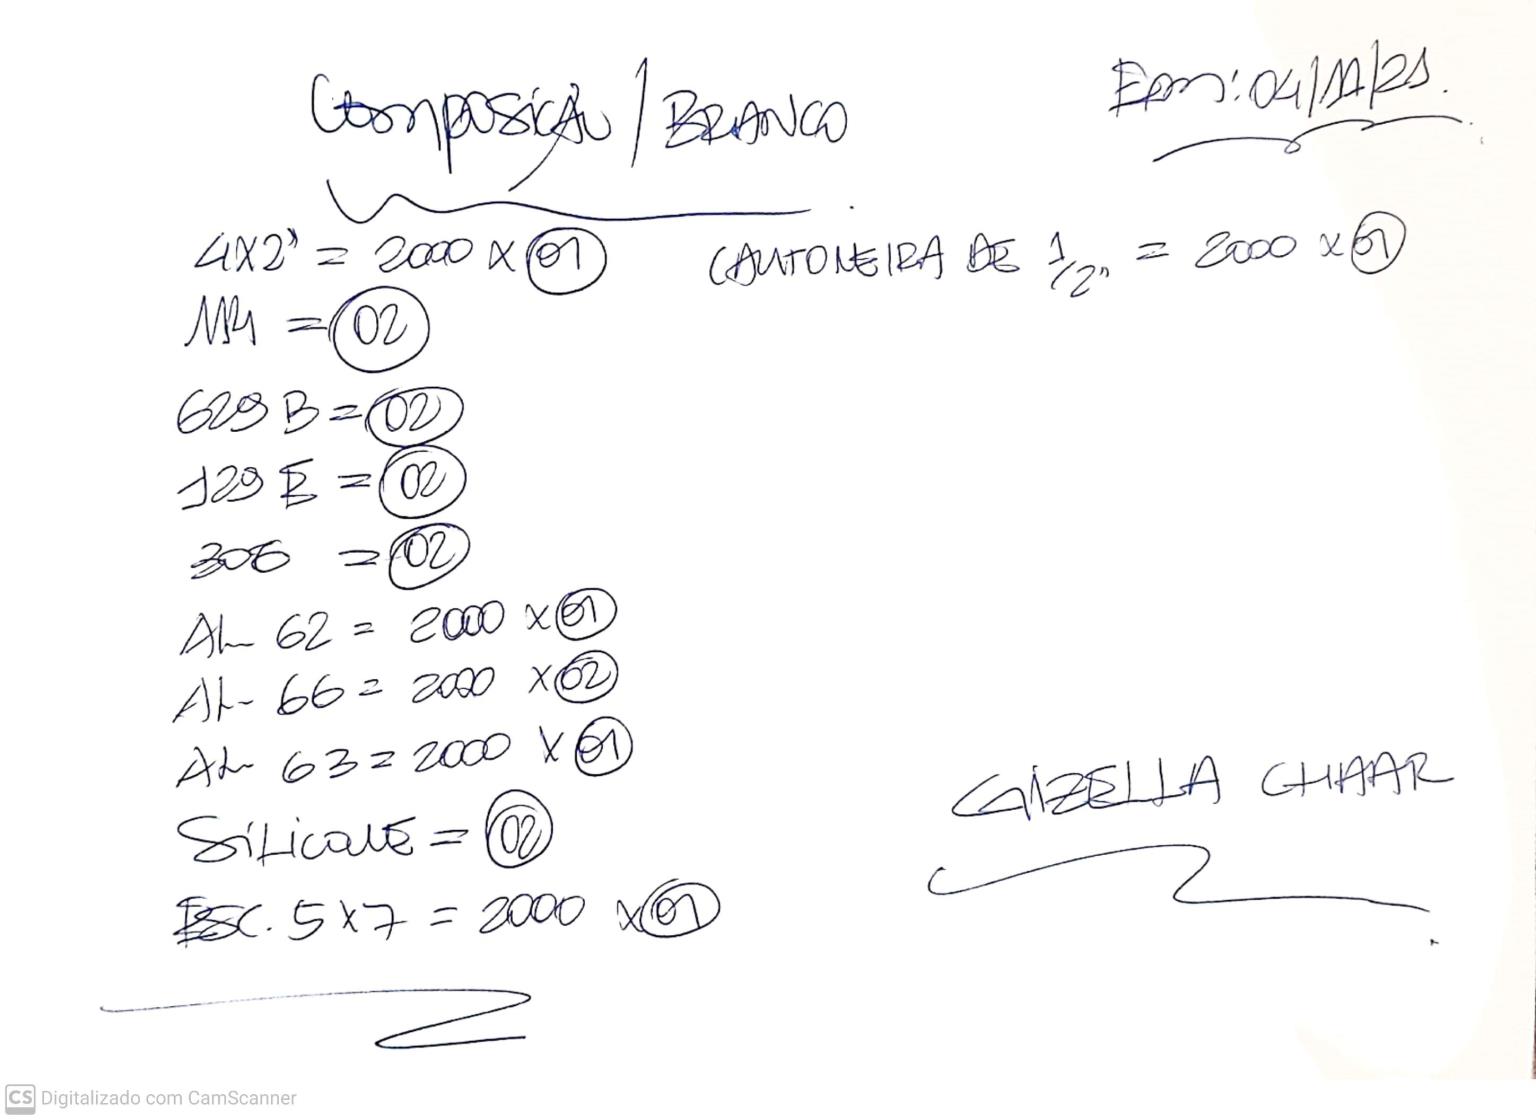 Composição / BRANCO
Em: 04/11/21.
4X2" = 2000 X 01
CANTONEIRA DE 1/2" = 2000 X 01
= 02
629 B = 02
129 E = 02
= 02
AL 62 = 2000 X 01
AL 66 = 2000 X 02
AL 63 = 2000 X 01
SILICONE = 02
ESC. 5 X 7 = 2000 X 01
GIZELLA CHAAR
CS Digitalizado com CamScanner